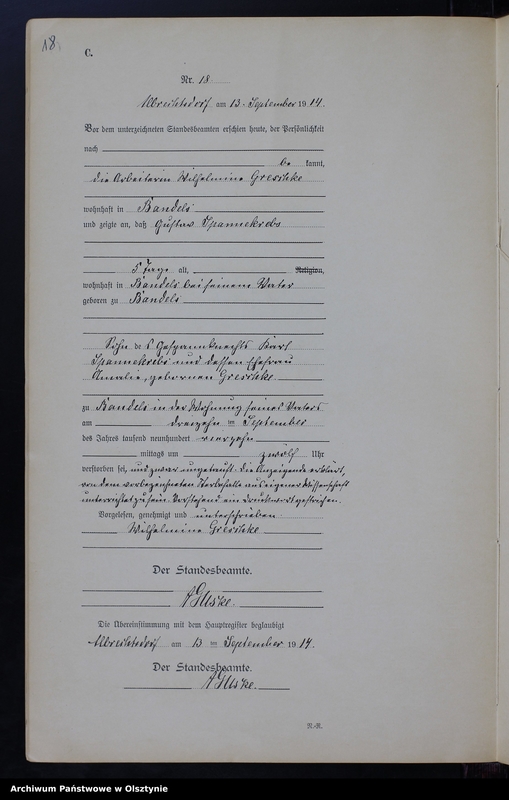 18.
C.
Nr. 18.
Albrechtsdorf am 13. September 1914.
Vor dem unterzeichneten Standesbeamten erschien heute, der Persönlichkeit
nach
be kannt,
die Arbeiterin Wilhelmine Greschke
wohnhaft in Bandels
und zeigte an, daß Gustav Spannekrebs
5 Tage alt, Religion,
wohnhaft in Bandels bei seinem Vater
geboren zu Bandels
Sohn des Gespannknechts Karl
Spannekrebs und dessen Ehefrau
Amalie, gebornen Greschke
zu Bandels in der Wohnung seines Vaters
am dreizehn im September
des Jahres tausend neunhundert vierzehn
mittags um zwölf Uhr
verstorben sei, und zwar ungetauft. Die Anzeigende erklärt,
von dem vorbezeichneten Sterbefalle aus eigener Wissenschaft
unterrichtet zu sein. Vorstehend ein Druckwort gestrichen.
Vorgelesen, genehmigt und unterschrieben
Wilhelmine Greschke
Der Standesbeamte.
Die Übereinstimmung mit dem Hauptregister beglaubigt
Albrechtsdorf am 13 ten September 1914.
Der Standesbeamte.
Archiwum Państwowe w Olsztynie